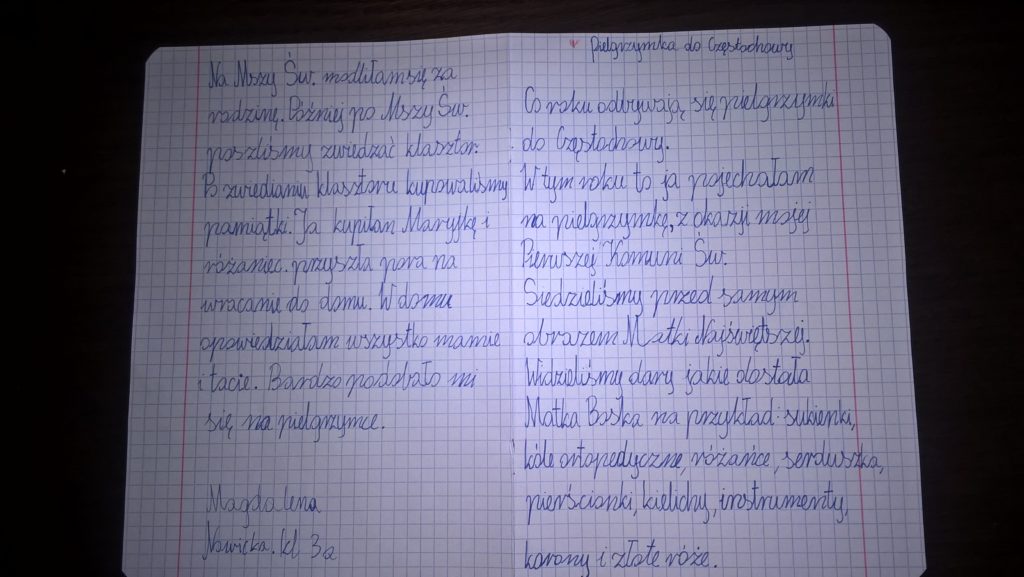 Pielgrzymka do Częstochowy
Co roku odbywają się pielgrzymki
do Częstochowy.
W tym roku to ja pojechałam
na pielgrzymkę, z okazji mojej
Pierwszej Komuni Św.
Siedzieliśmy przed samym
obrazem Matki Najświętszej.
Widzieliśmy dary jakie dostała
Matka Boska na przykład: sukienki,
kóle ortopedyczne, różańce, serduszka,
pierścionki, kielichy, instrumenty,
korony i złote róże.
Na Mszy Św. modliłam się za
rodzinę. Później po Mszy Św.
poszliśmy zwiedzać klasztor.
Po zwiedianiu klasztoru kupowaliśmy
pamiątki. Ja kupiłan Maryjkę i
różaniec. przyszła pora na
wracanie do domu. W domu
opowiedziałam wszystko mamie
i tacie. Bardzo podobało mi
się na pielgrzymce.
Magdalena
Nawicka. kl 3a